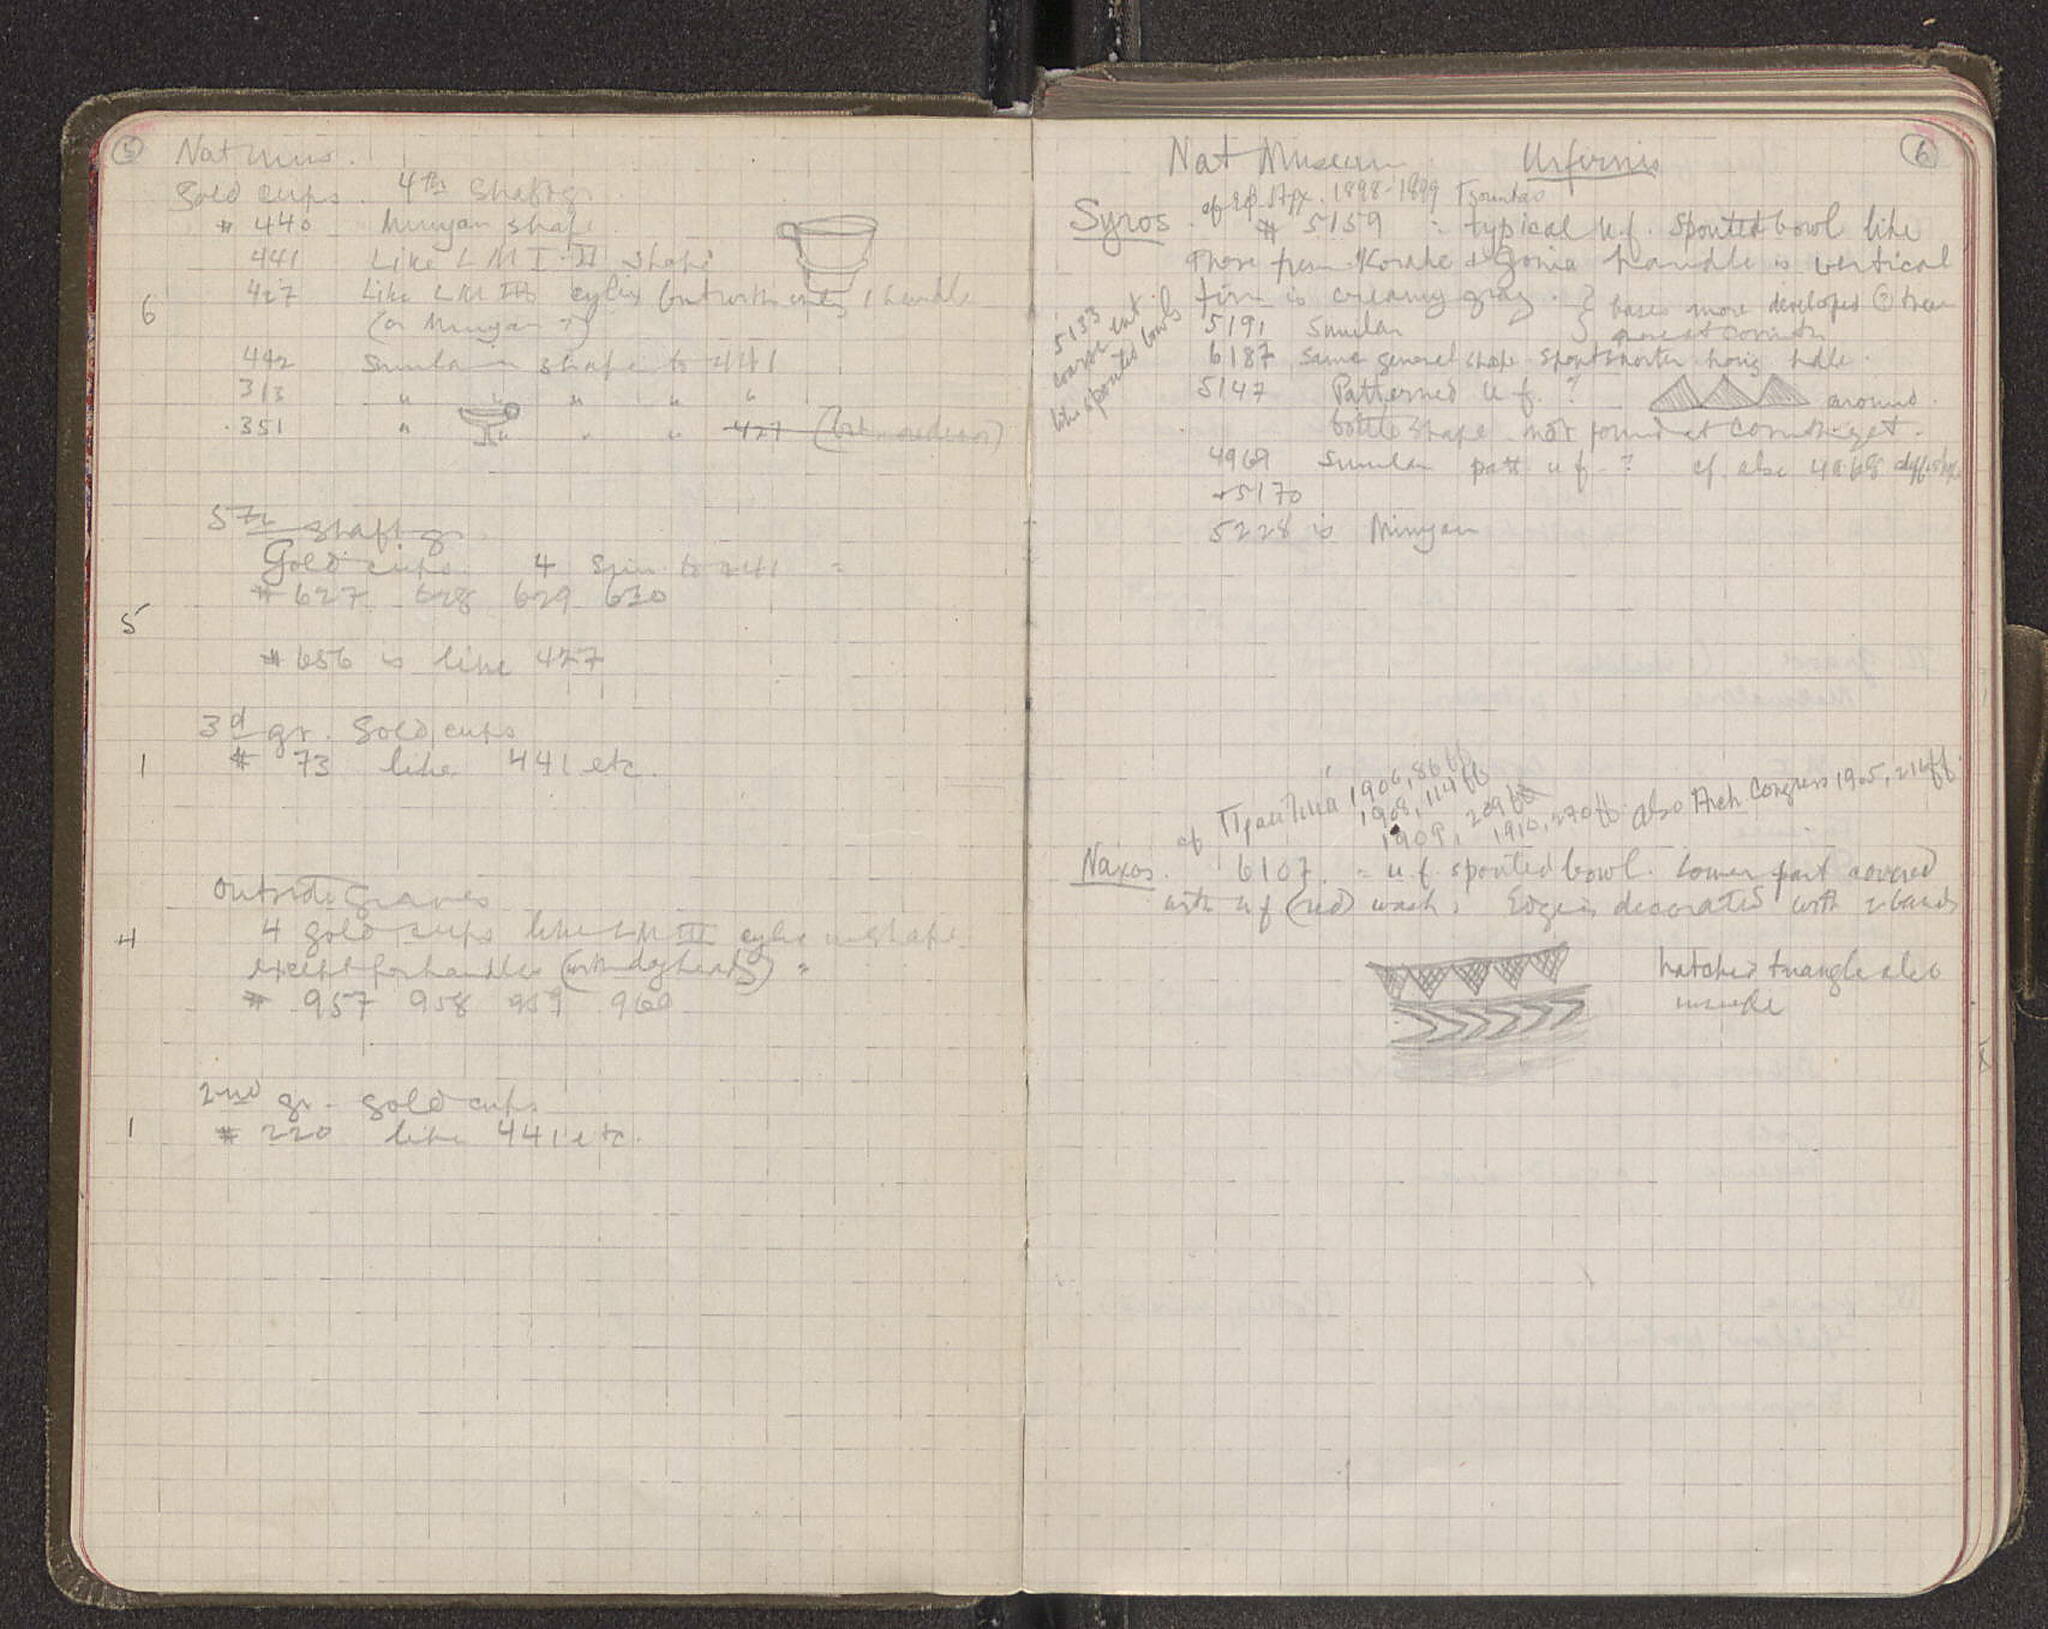 5 Nat Mus.
Gold cups. 4th Shaft gr.
# 440 Minyan shape
441 Like LM I-II shape
427 Like LM III cylix but with only 1 handle
6
(or Minyan ?)
442 Similar in shape to 441
313 " " " " "
351 " " " " 427
5th shaft gr
Gold cups. 4 sim. to 441 =
# 627 628 629 630
5
# 656 is like 427
3d gr. Gold cups
1 # 73 like 441 etc.
Outside graves
4 4 gold cups like LM III cylix in shape
except for handles (with dog heads) =
# 957 958 959 960
2nd gr. gold cups
1 # 220 like 441 etc.
Nat Museum Urfirnis 6
cf Εφ. Αρχ. 1898-1899 Tsountas
Syros. # 5159 = typical u.f. spouted bowl like
those from Korake + Gonia handle is vertical
firn is creamy gray. } bases more developed than
5191 Similar } ones at Corinth
6187 same general shape spout shorter horiz hdle.
5147 Patterned u.f. ? around.
bottle shape not found at Corinth yet.
4969 Similar patt u f - ? cf. also 4968 diff. shape
+ 5170
5228 is Minyan
5133
coarse but
like spouted bowls
cf Πρακτικα 1906, 86 ff
1908, 114 ff
1909, 209 ff 1910, 270 ff also Arch Congress 1905, 216 ff.
Naxos. 6107. = u.f. spouted bowl. Lower part covered
with u f (red) wash. Edge is decorated with 2 bands
hatched triangle also
inside